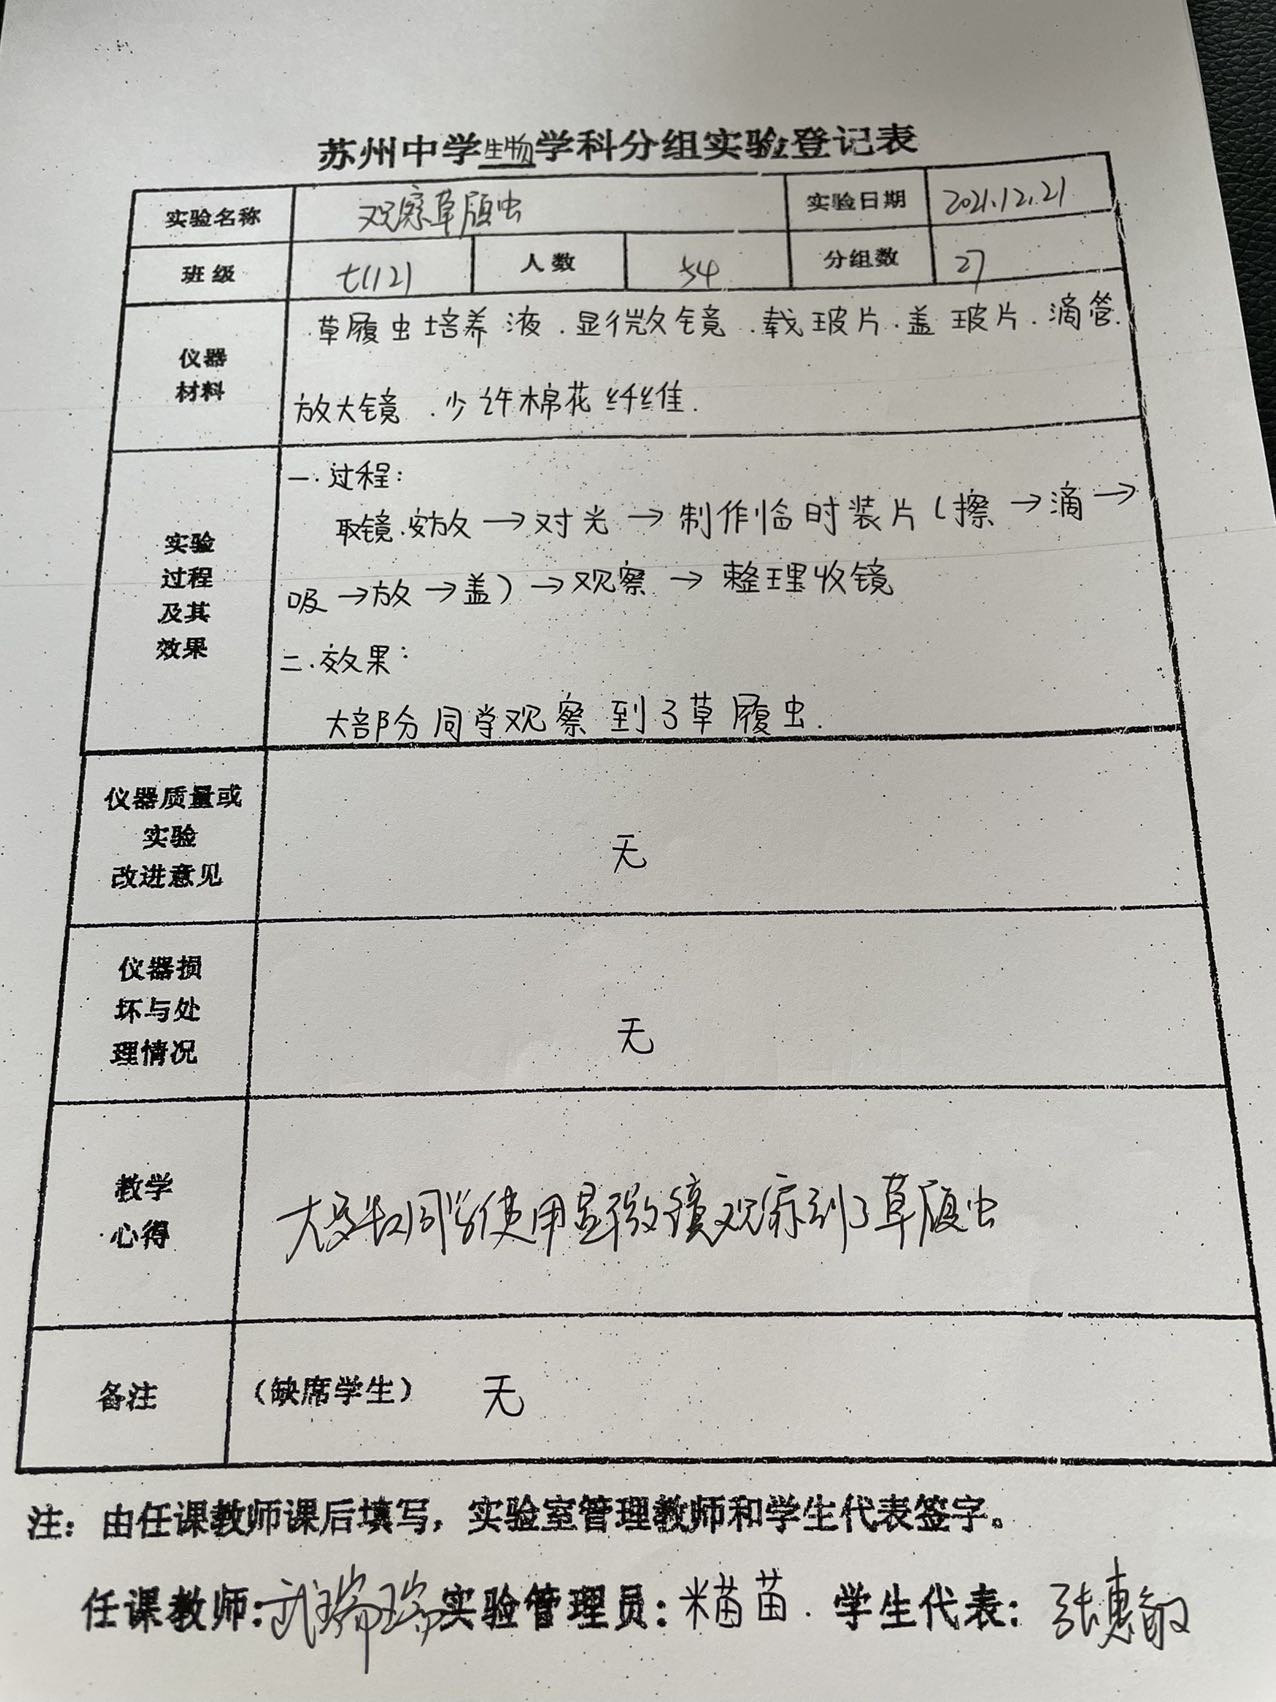 苏州中学生物学科分组实验登记表
实验名称 观察草履虫 实验日期 2021.12.21
班级 七(12) 人数 54 分组数 27
仪器
材料
草履虫培养液.显微镜.载玻片.盖玻片.滴管.
放大镜.少许棉花纤维.
实验
过程
及其
效果
一.过程:
取镜.安放→对光→制作临时装片(擦→滴→
吸→放→盖)→观察→整理收镜
二.效果:
大部分同学观察到了草履虫.
仪器质量或
实验
改进意见
无
仪器损
坏与处
理情况
无
教学
心得
大多数同学使用显微镜观察到了草履虫
备注 (缺席学生) 无
注：由任课教师课后填写，实验室管理教师和学生代表签字。
任课教师:武瑞瑞 实验管理员:米苗苗. 学生代表:张惠敏